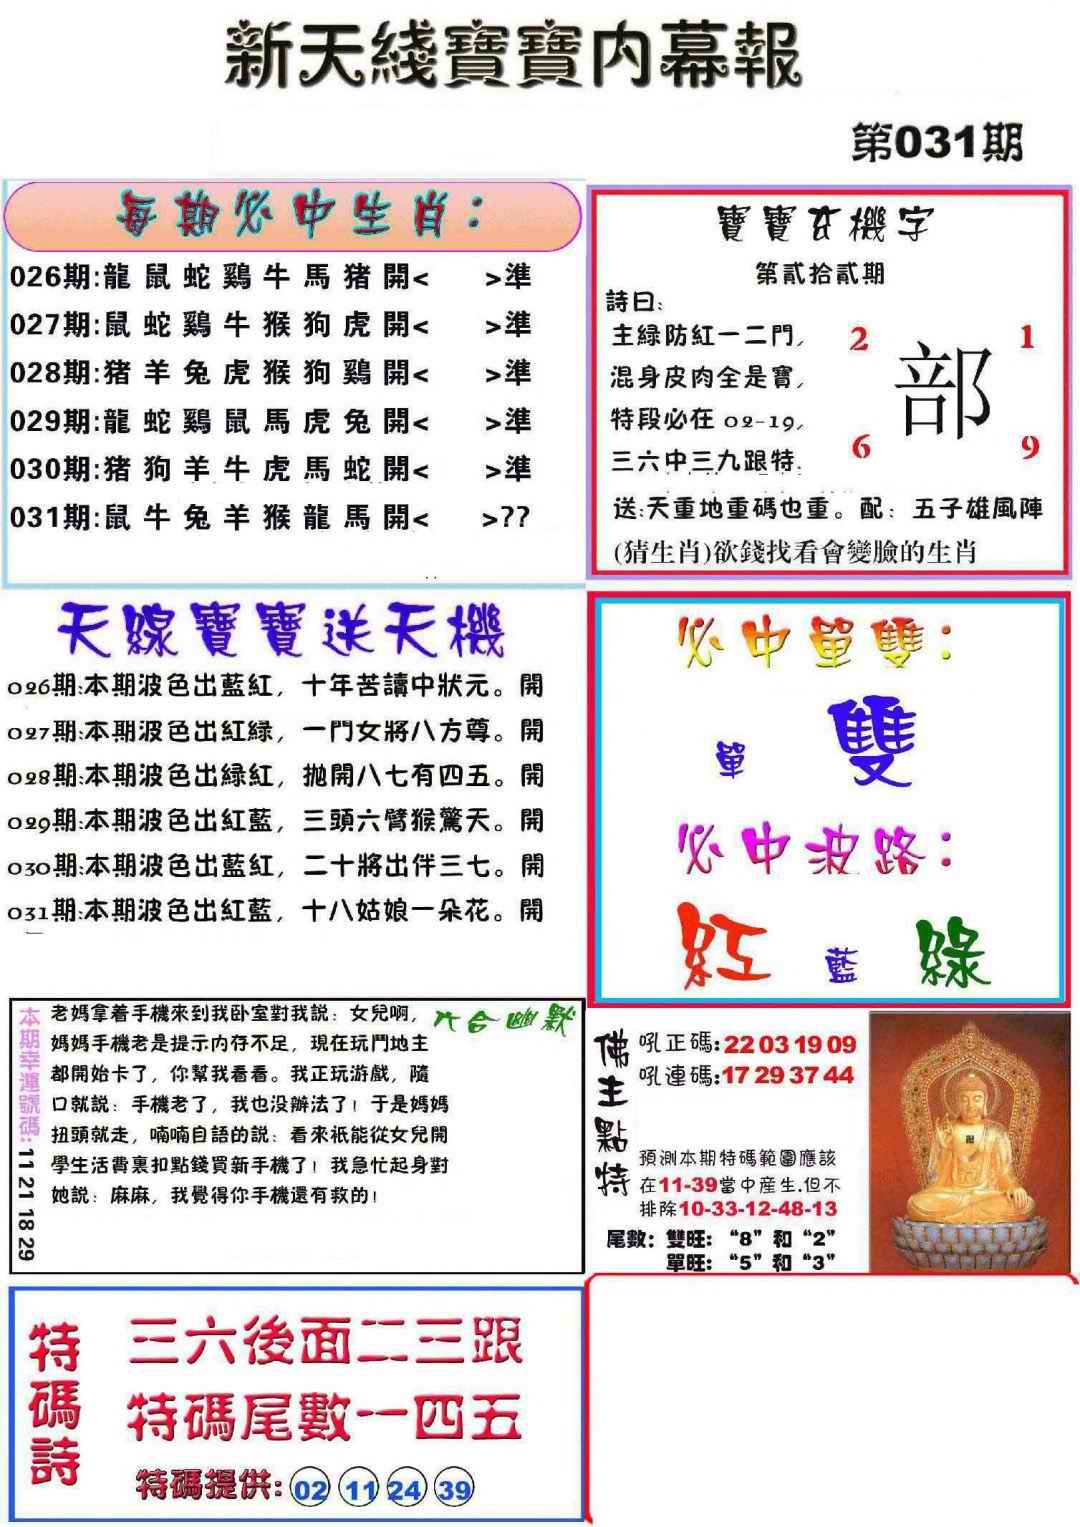 新天綫寶寶内幕報
第031期
每期必中生肖：
026期:龍 鼠 蛇 鷄 牛 馬 猪 開< >準
027期:鼠 蛇 鷄 牛 猴 狗 虎 開< >準
028期:猪 羊 兔 虎 猴 狗 鷄 開< >準
029期:龍 蛇 鷄 鼠 馬 虎 兔 開< >準
030期:猪 狗 羊 牛 虎 馬 蛇 開< >準
031期:鼠 牛 兔 羊 猴 龍 馬 開< >??
寶寶玄機字
第貳拾貳期
詩曰:
主緑防紅一二門,
混身皮肉全是寶,
特段必在 02-19,
三六中三九跟特.
2 1
部
6 9
送:天重地重碼也重。配：五子雄風陣
(猜生肖)欲錢找看會變臉的生肖
天線寶寶送天機
026期:本期波色出藍紅，十年苦讀中狀元。開
027期:本期波色出紅緑，一門女將八方尊。開
028期:本期波色出緑紅，抛開八七有四五。開
029期:本期波色出紅藍，三頭六臂猴驚天。開
030期:本期波色出藍紅，二十將出伴三七。開
031期:本期波色出紅藍，十八姑娘一朵花。開
必中單雙：
單 雙
必中波路：
紅 藍 綠
本期幸運號碼:11 21 18 29
六合幽默
老媽拿着手機來到我卧室對我説：女兒啊,
媽媽手機老是提示内存不足，現在玩鬥地主
都開始卡了，你幫我看看。我正玩游戲，隨
口就説：手機老了，我也没辦法了！于是媽媽
扭頭就走，喃喃自語的説：看來祇能從女兒開
學生活費裏扣點錢買新手機了！我急忙起身對
她説：麻麻，我覺得你手機還有救的！
佛主點特
吼正碼:22 03 19 09
吼連碼:17 29 37 44
預測本期特碼範圍應該
在11-39當中産生.但不
排除10-33-12-48-13
尾數：雙旺：“8”和“2”
單旺：“5”和“3”
特碼詩
三六後面二三跟
特碼尾數一四五
特碼提供: 02 11 24 39